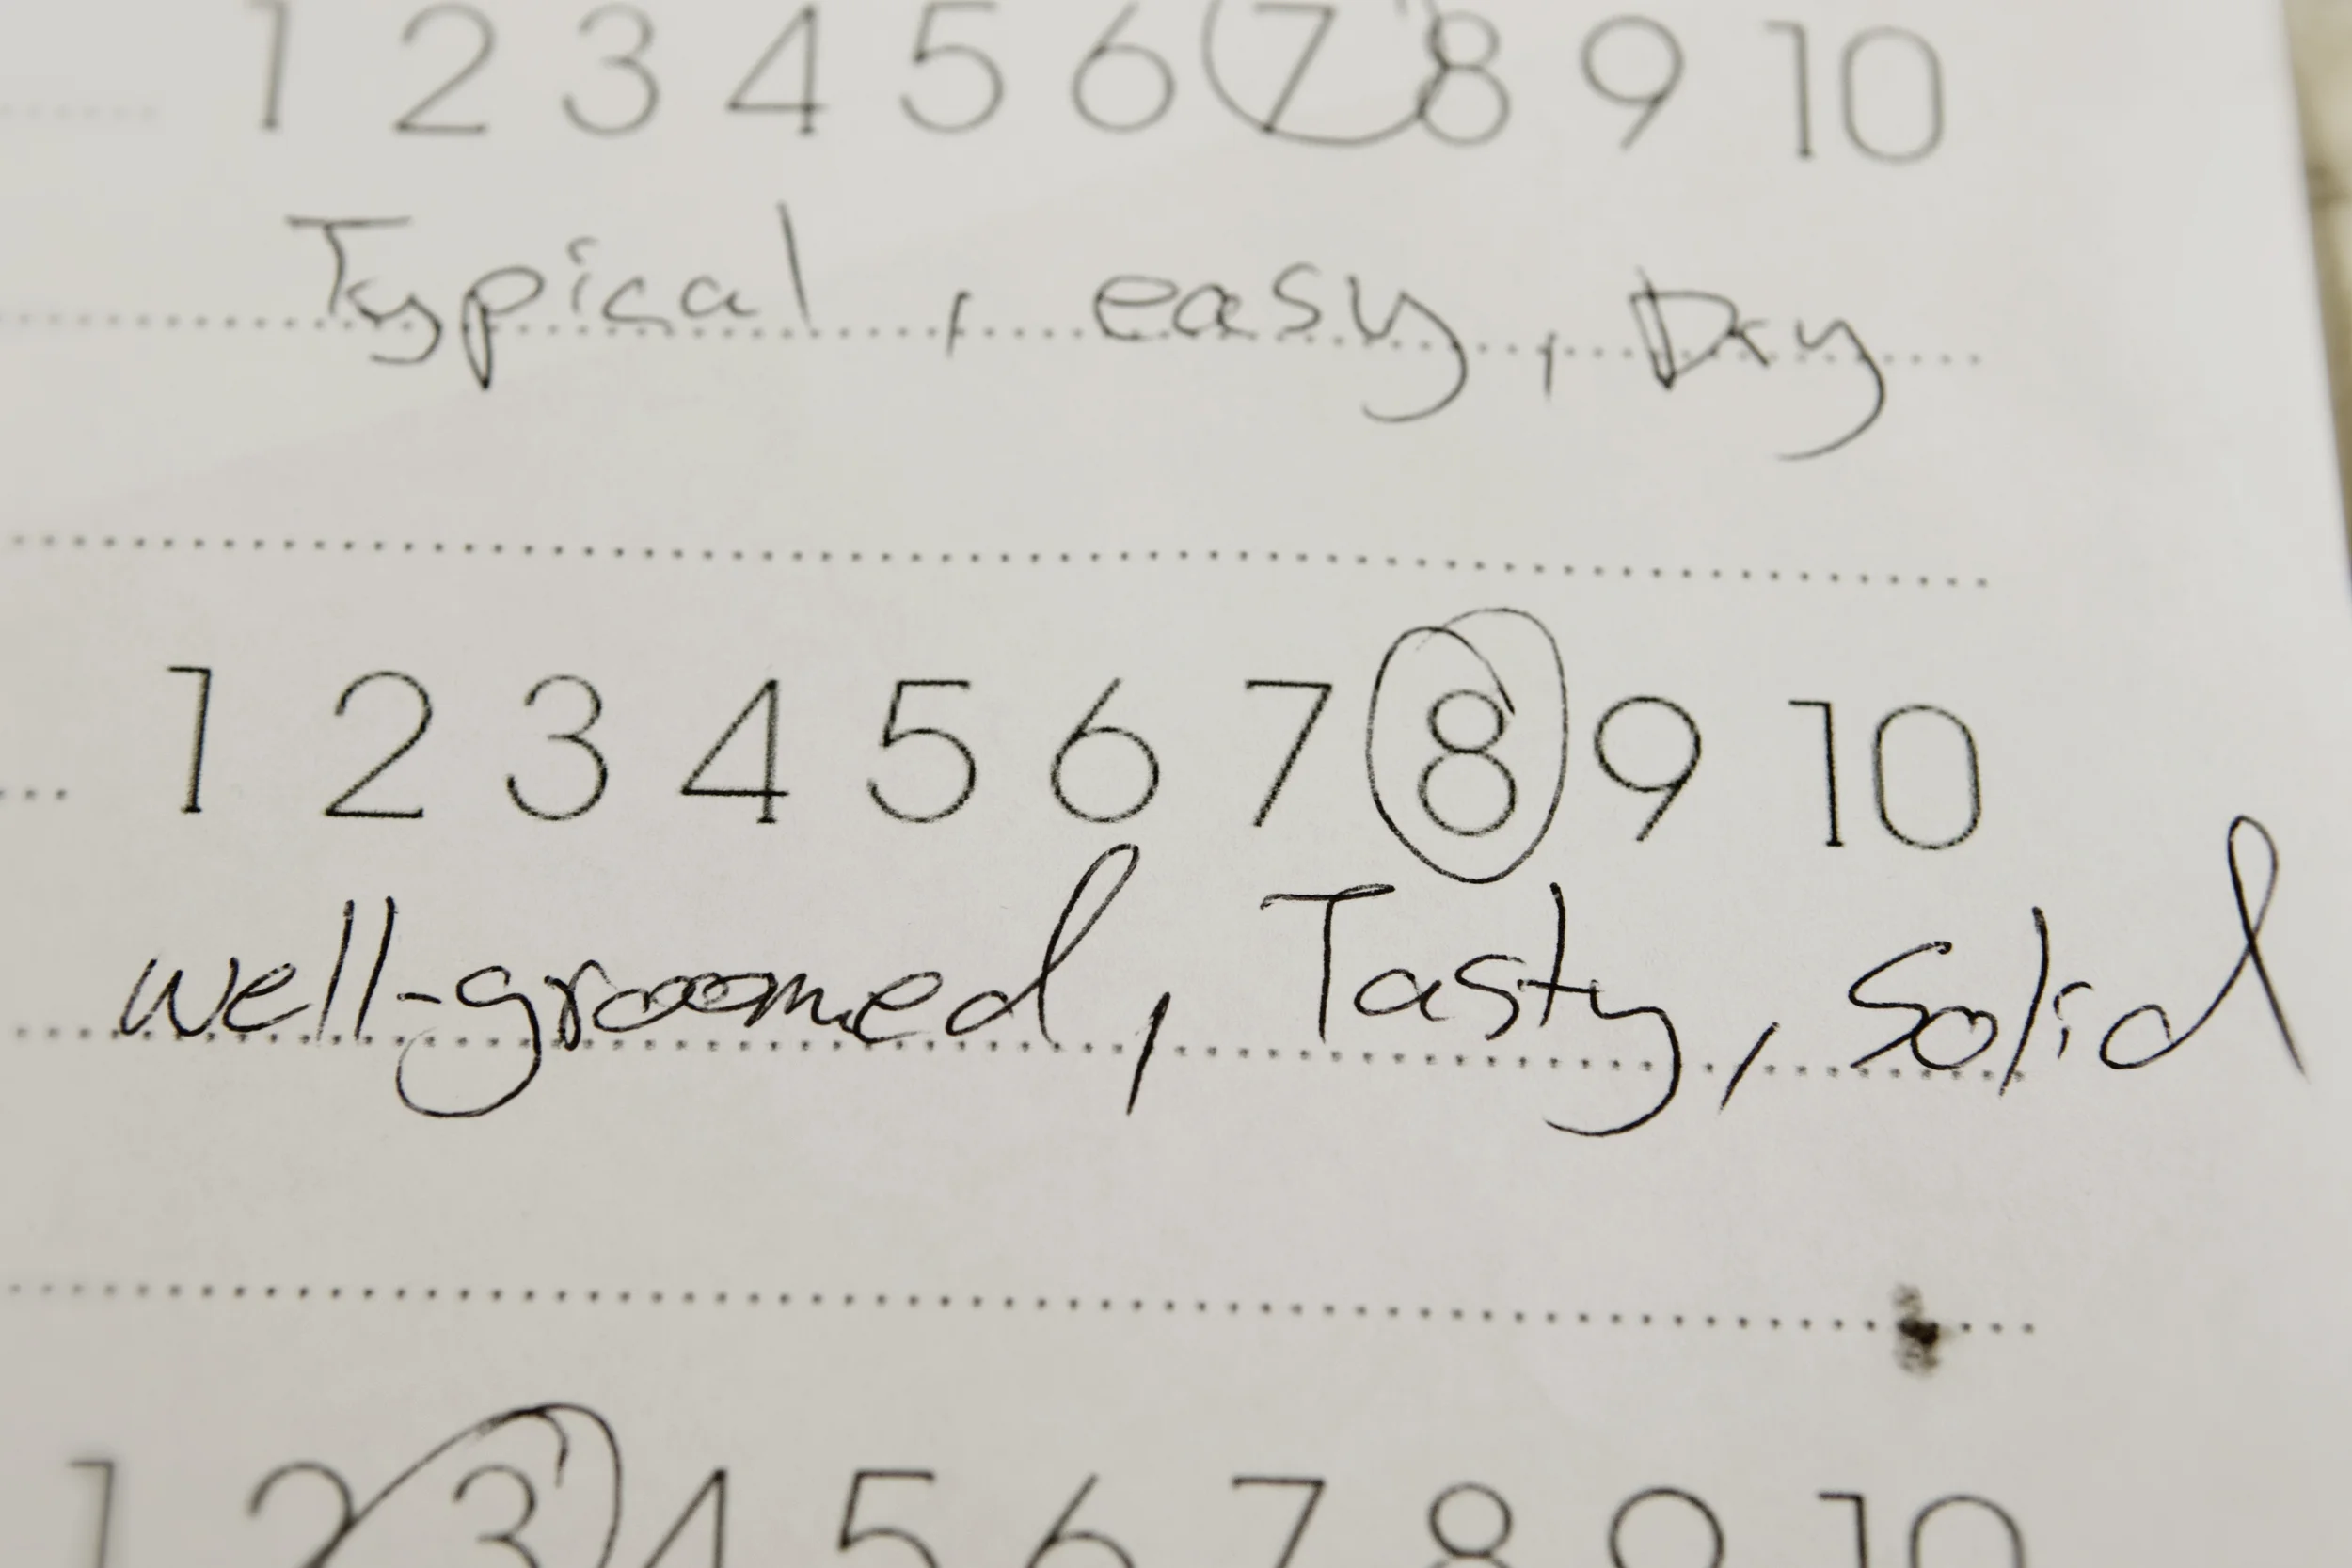 1 2 3 4 5 6 7 8 9 10
Typical, easy, Dry
1 2 3 4 5 6 7 8 9 10
well-groomed, Tasty, Solid
1 2 3 4 5 6 7 8 9 10